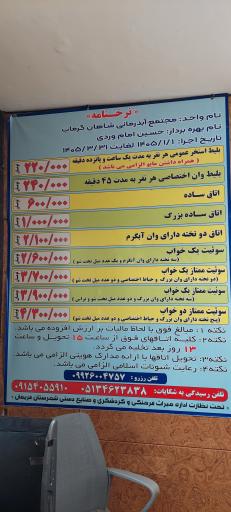 «نرخنامه»
نام واحد: مجتمع آبدرمانی شاهان گرماب
نام بهره بردار: حسین امام وردی
تاریخ اجرا: ۱۴۰۵/۱/۱ لغایت ۱۴۰۵/۳/۳۱
بلیط استخر عمومی هر نفر به مدت یک ساعت و پانزده دقیقه
( همراه داشتن مایو الزامی می باشد ) ۲۲۰/۰۰۰
بلیط وان اختصاصی هر نفر به مدت ۴۵ دقیقه ۲۴۰/۰۰۰
اتاق ساده ۶۰۰/۰۰۰
اتاق ساده بزرگ ۱/۰۰۰/۰۰۰
اتاق دو تخته دارای وان آبگرم ۲/۱۰۰/۰۰۰
سوئیت یک خواب
(سه تخته دارای وان آبگرم و یک عدد مبل تخت شو) ۲/۶۰۰/۰۰۰
سوئیت ممتاز یک خواب
(سه تخته دارای وان بزرگ و حیاط اختصاصی و دو عدد مبل تخت شو) ۳/۷۰۰/۰۰۰
سوئیت ممتاز یک خواب
(سه تخته دارای وان بزرگ و دو عدد مبل تخت شو و تراس) ۳/۹۰۰/۰۰۰
سوئیت ممتاز دو خواب
(پنج تخته دارای وان بزرگ و حیاط اختصاصی و دو عدد مبل تخت شو) ۴/۳۰۰/۰۰۰
نکته ۱: مبالغ فوق با لحاظ مالیات بر ارزش افزوده می باشد.
نکته ۲: کلیه اتاقهای فوق از ساعت ۱۵ تحویل و ساعت
۱۳ روز بعد تخلیه می گردد.
نکته۳: تحویل اتاقها با ارائه مدارک هویتی الزامی می باشد.
نکته۴: رعایت شئونات اسلامی الزامی می باشد.
تلفن رزرو : ۰۹۹۲۶۰۰۴۷۵۷
تلفن رسیدگی به شکایات: ۰۵۱۳۴۶۲۳۸۳۸ ۰۹۱۵۴۰۵۵۹۱۰
تحت نظارت اداره میراث فرهنگی و گردشگری و صنایع دستی شهرستان فریمان